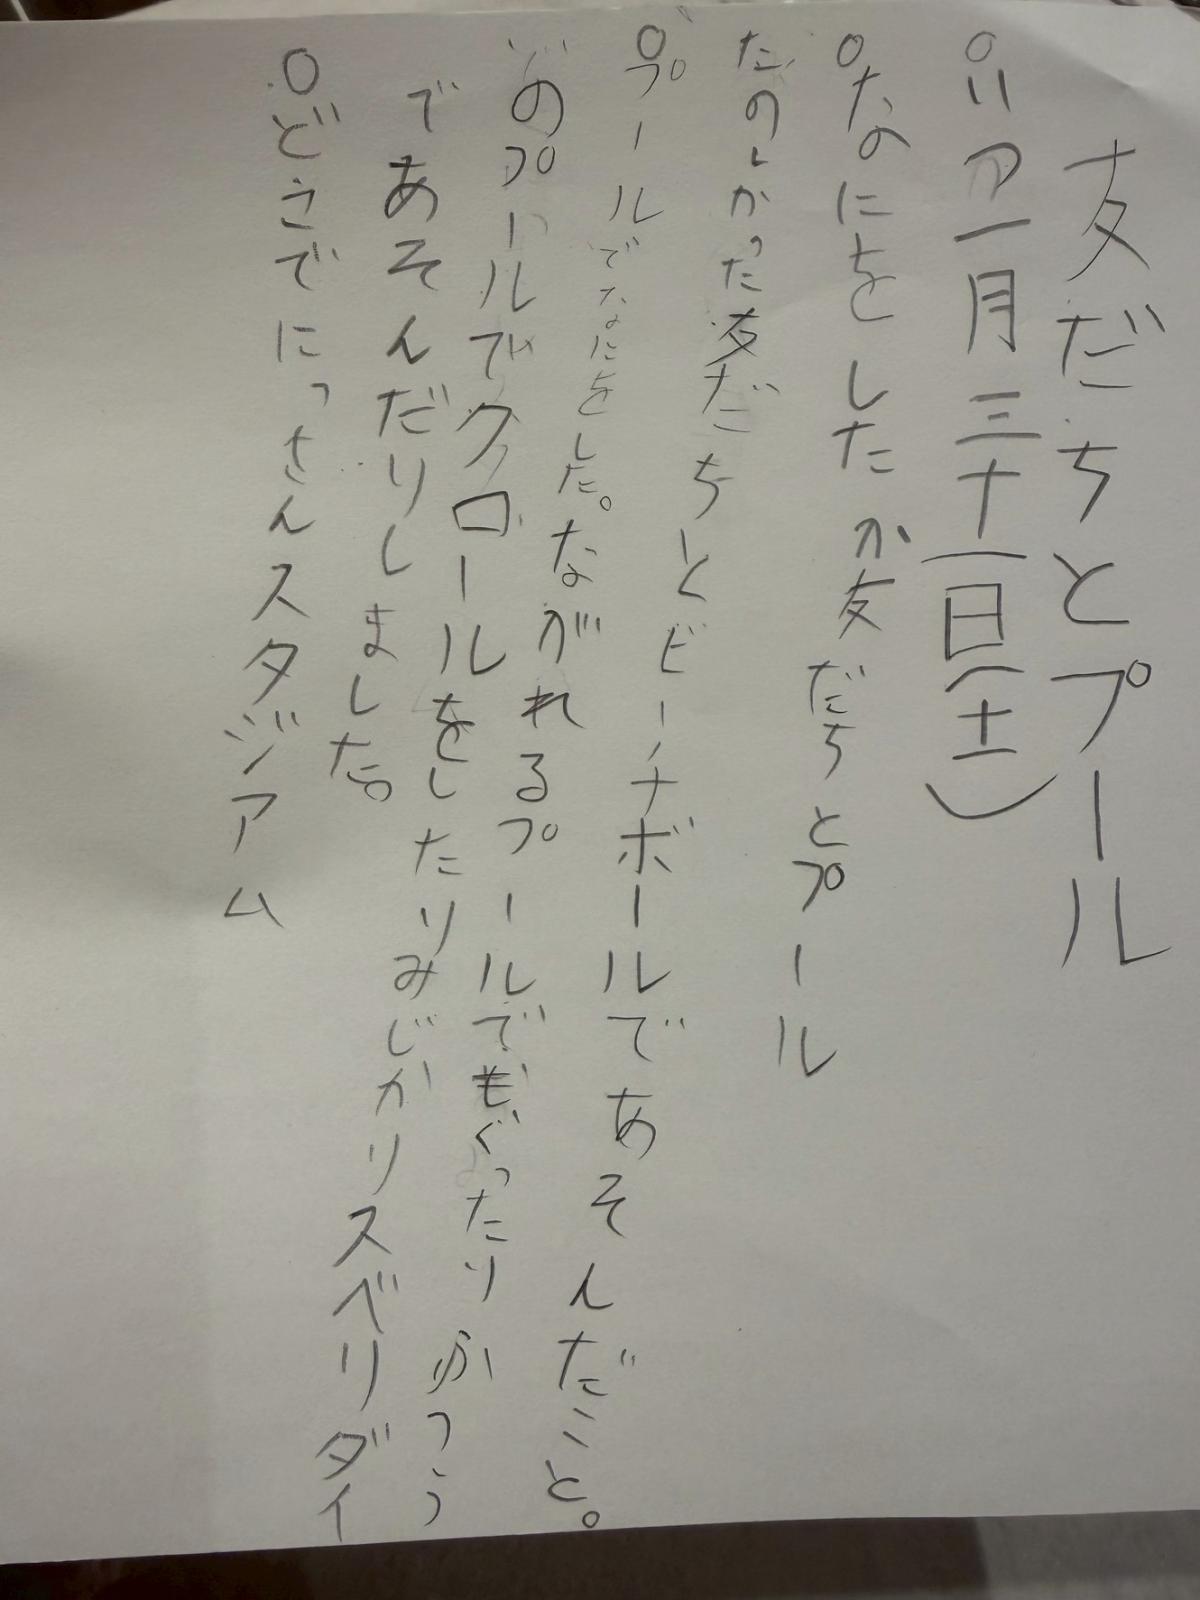 友だちとプール
○いつ一月三十一日(土)
○なにをしたか友だちとプール
たのしかった友だちとビーチボールであそんだこと。
○プールでなにをした。ながれるプールでもぐったりふつう
のプールでクロールをしたりみじかりスベリダイ
であそんだりしました。
○どこでにっさんスタジアム